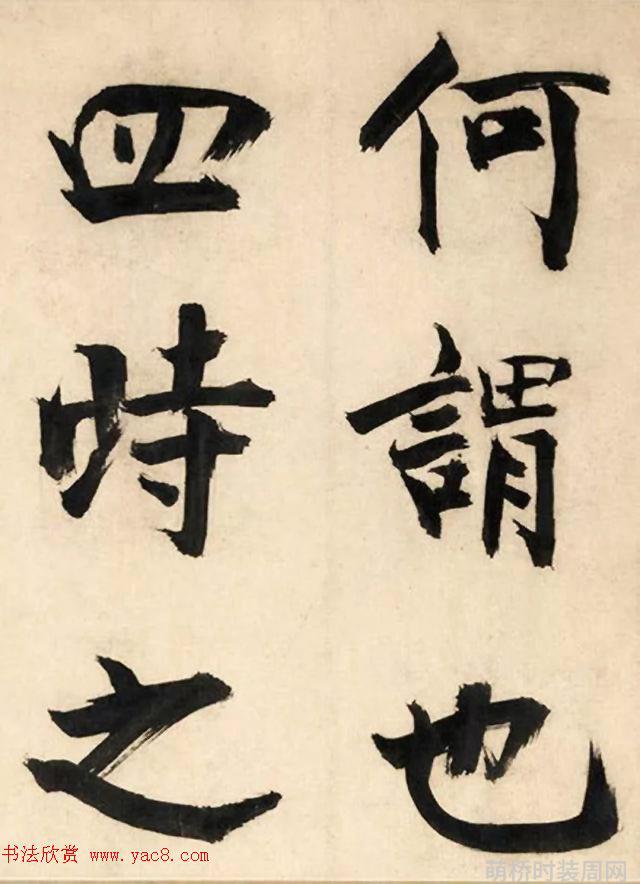 何謂也
四時之
书法欣赏 www.yac8.com
萌桥时装周网